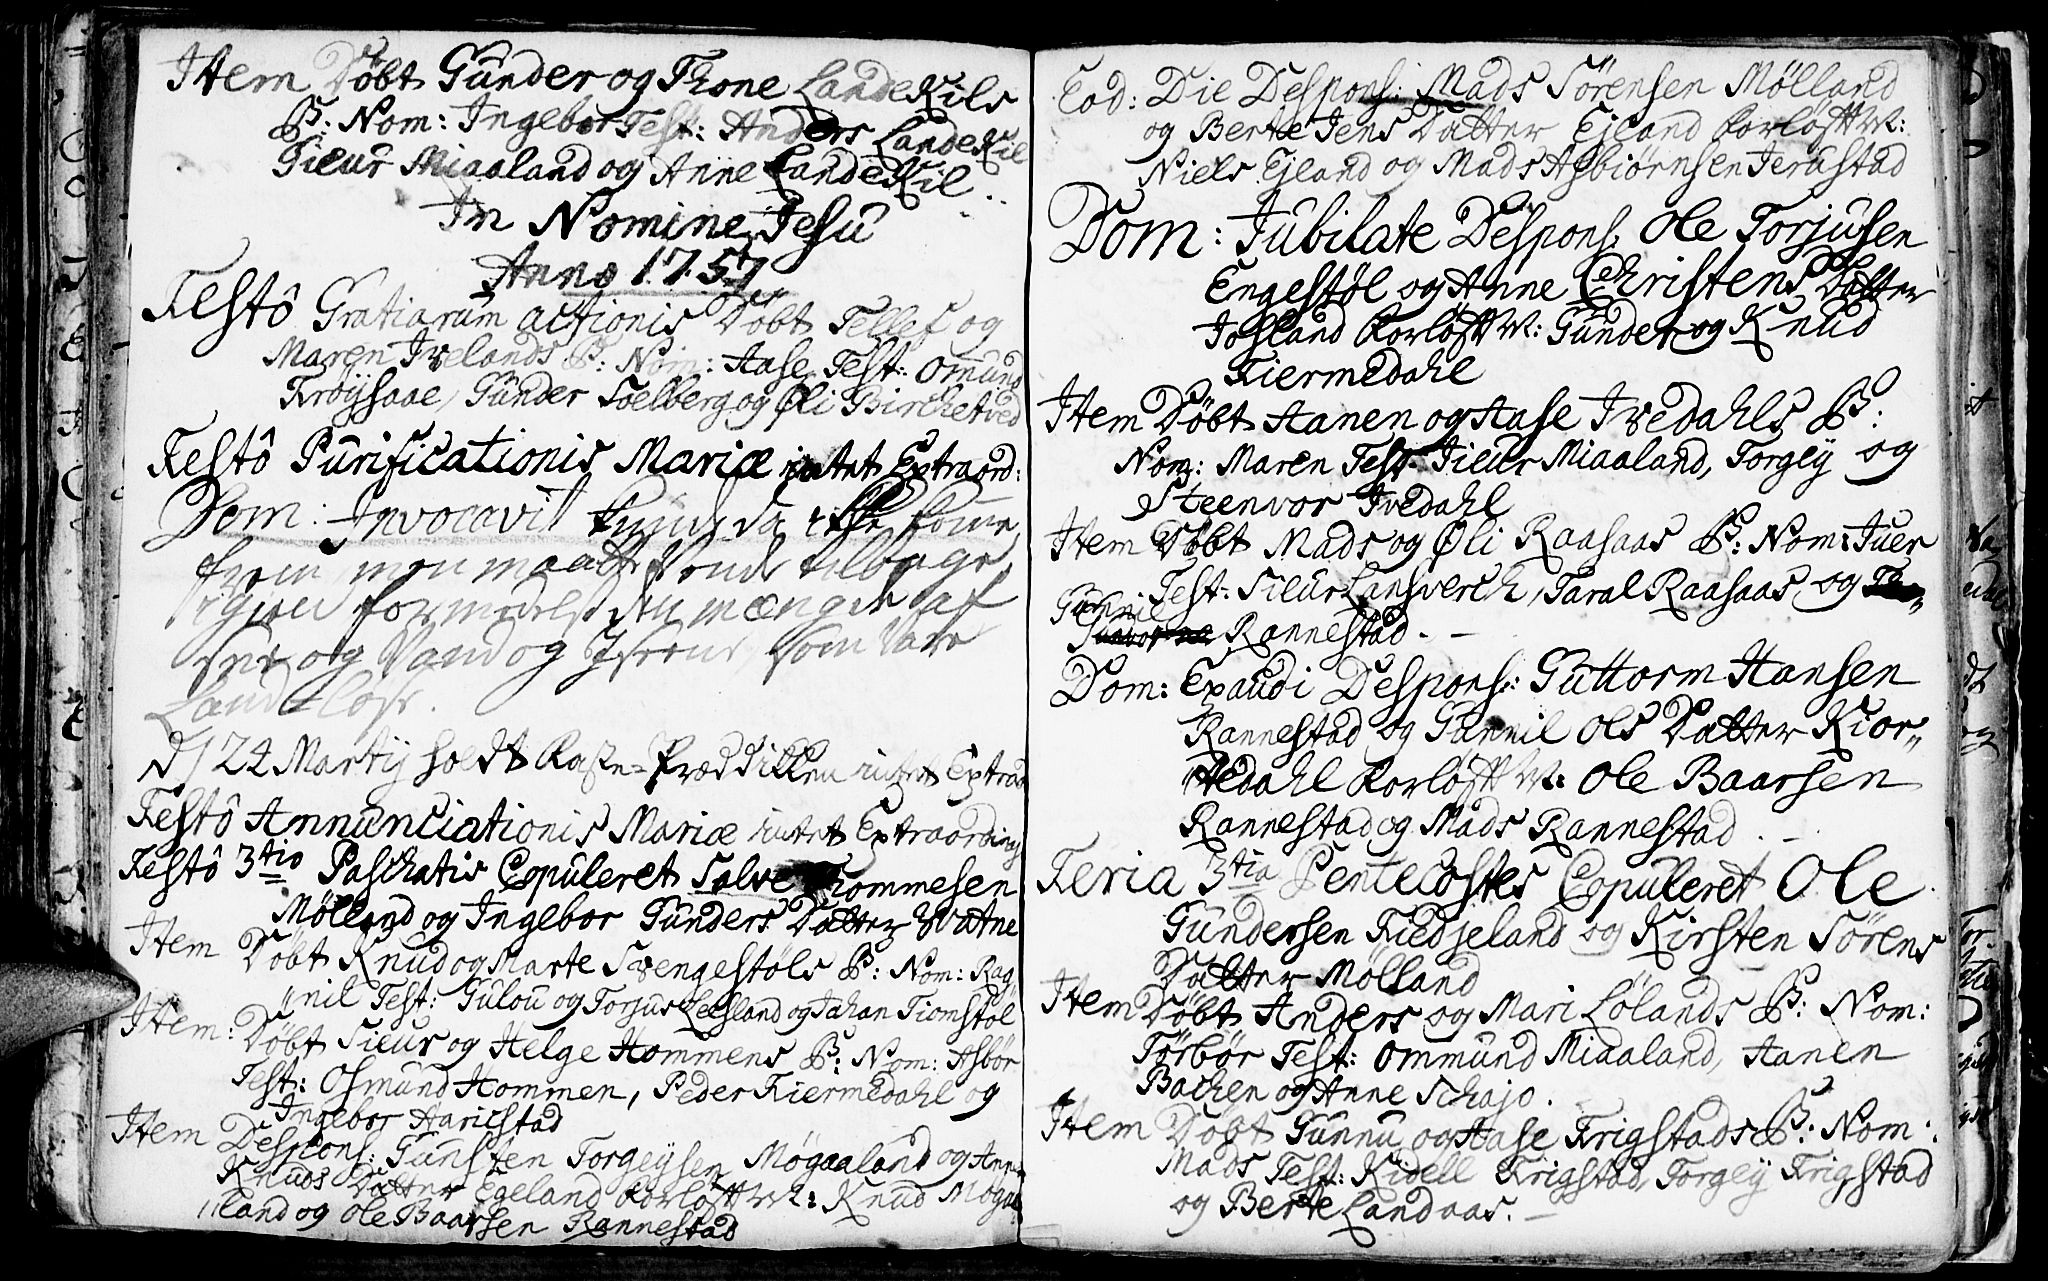 Item Døbt Gunder og Thone LandeKils
B: Nom: Ingebor Test: Anders LandeKil
Sieur Miaaland og Anne LandeKil
In Nomine Jesu
Anno 1757
Festô Gratiarum actionis Døbt Tellef og
Maren Ivelands B: Nom: Aase Test: Omund
Frøysaae, Gunder Soelberg og Øli Birchetved
Festô Purificationis Mariæ intet Extraord:
Dom: Invocavit kunde ikke komme
frem, men maatte vende tilbage
igien formedelst den mængde af
Snee og Vand og Isene, som vare
Landløse.
d 24 Martij holdt Faste-Prædikken intet Extraord
Festô Annunciationis Mariæ intet Extraording
Festô 3tio Paschatis Copuleret Salve Thommesen
Mølland og Ingebor Gunders Datter Watne
Item Døbt Knud og Marte Svengestøls B: Nom: Rag„
„nil Test: Gulou og Torjus Lersland og Johan Tiomstøl
Item: Døbt Sieur og Helge Hommens B: Nom: Asbør
Test: Osmund Hommen, Peder Fiermedahl og
Ingebor Haristad
Item Despons: Gunsten Torgeysen Møgaaland og Anne
Knuds Datter Egeland Forløftn: Knud Mogaa
„land og Ole Baarsen Rannestad
Eod: Die Despons: Mads Sørensen Mølland
og Berte Jens Datter Ejland Forløftn:
Niels Ejland og Mads Asbiørnsen Jerustad
Dom: Jubilate Despons. Ole Torjusen
Engestøl og Anne Christens Datter
Josland Forløftn: Gunder og Knud
Fiermedahl
Item Døbt Aanen og Aase Ivedahls B:
Nom: Maren Test: Sieur Miaaland, Torgey og
Steenvor Ivedahl
Item Døbt Mads og Øli Raasaas B: Nom: Iuer
Test: Sieur Lansverck, Taral Raasaas og
Gunnil Rannestad.
Dom: Exaudi Despons: Guttorm Hansen
Rannestad og Gunnil Ols Datter Kior„
„tedahl Forløftn: Ole Baarsen
Rannestad og Mads Rannestad.
Feria 3tia Pentecostes Copuleret Ole
Gundersen Fiedjeland og Kirsten Sørens
Datter Mølland
Item Døbt Anders og Mari Lølands B: Nom:
Tørbør Test: Ommund Miaaland, Aanen
Bachen og Anne Schajo.
Item Døbt Gunnu og Aase Frigstads B: Nom:
Mads Test: Kidell Frigstad, Torgey Frigstad
og Berte Landaas.